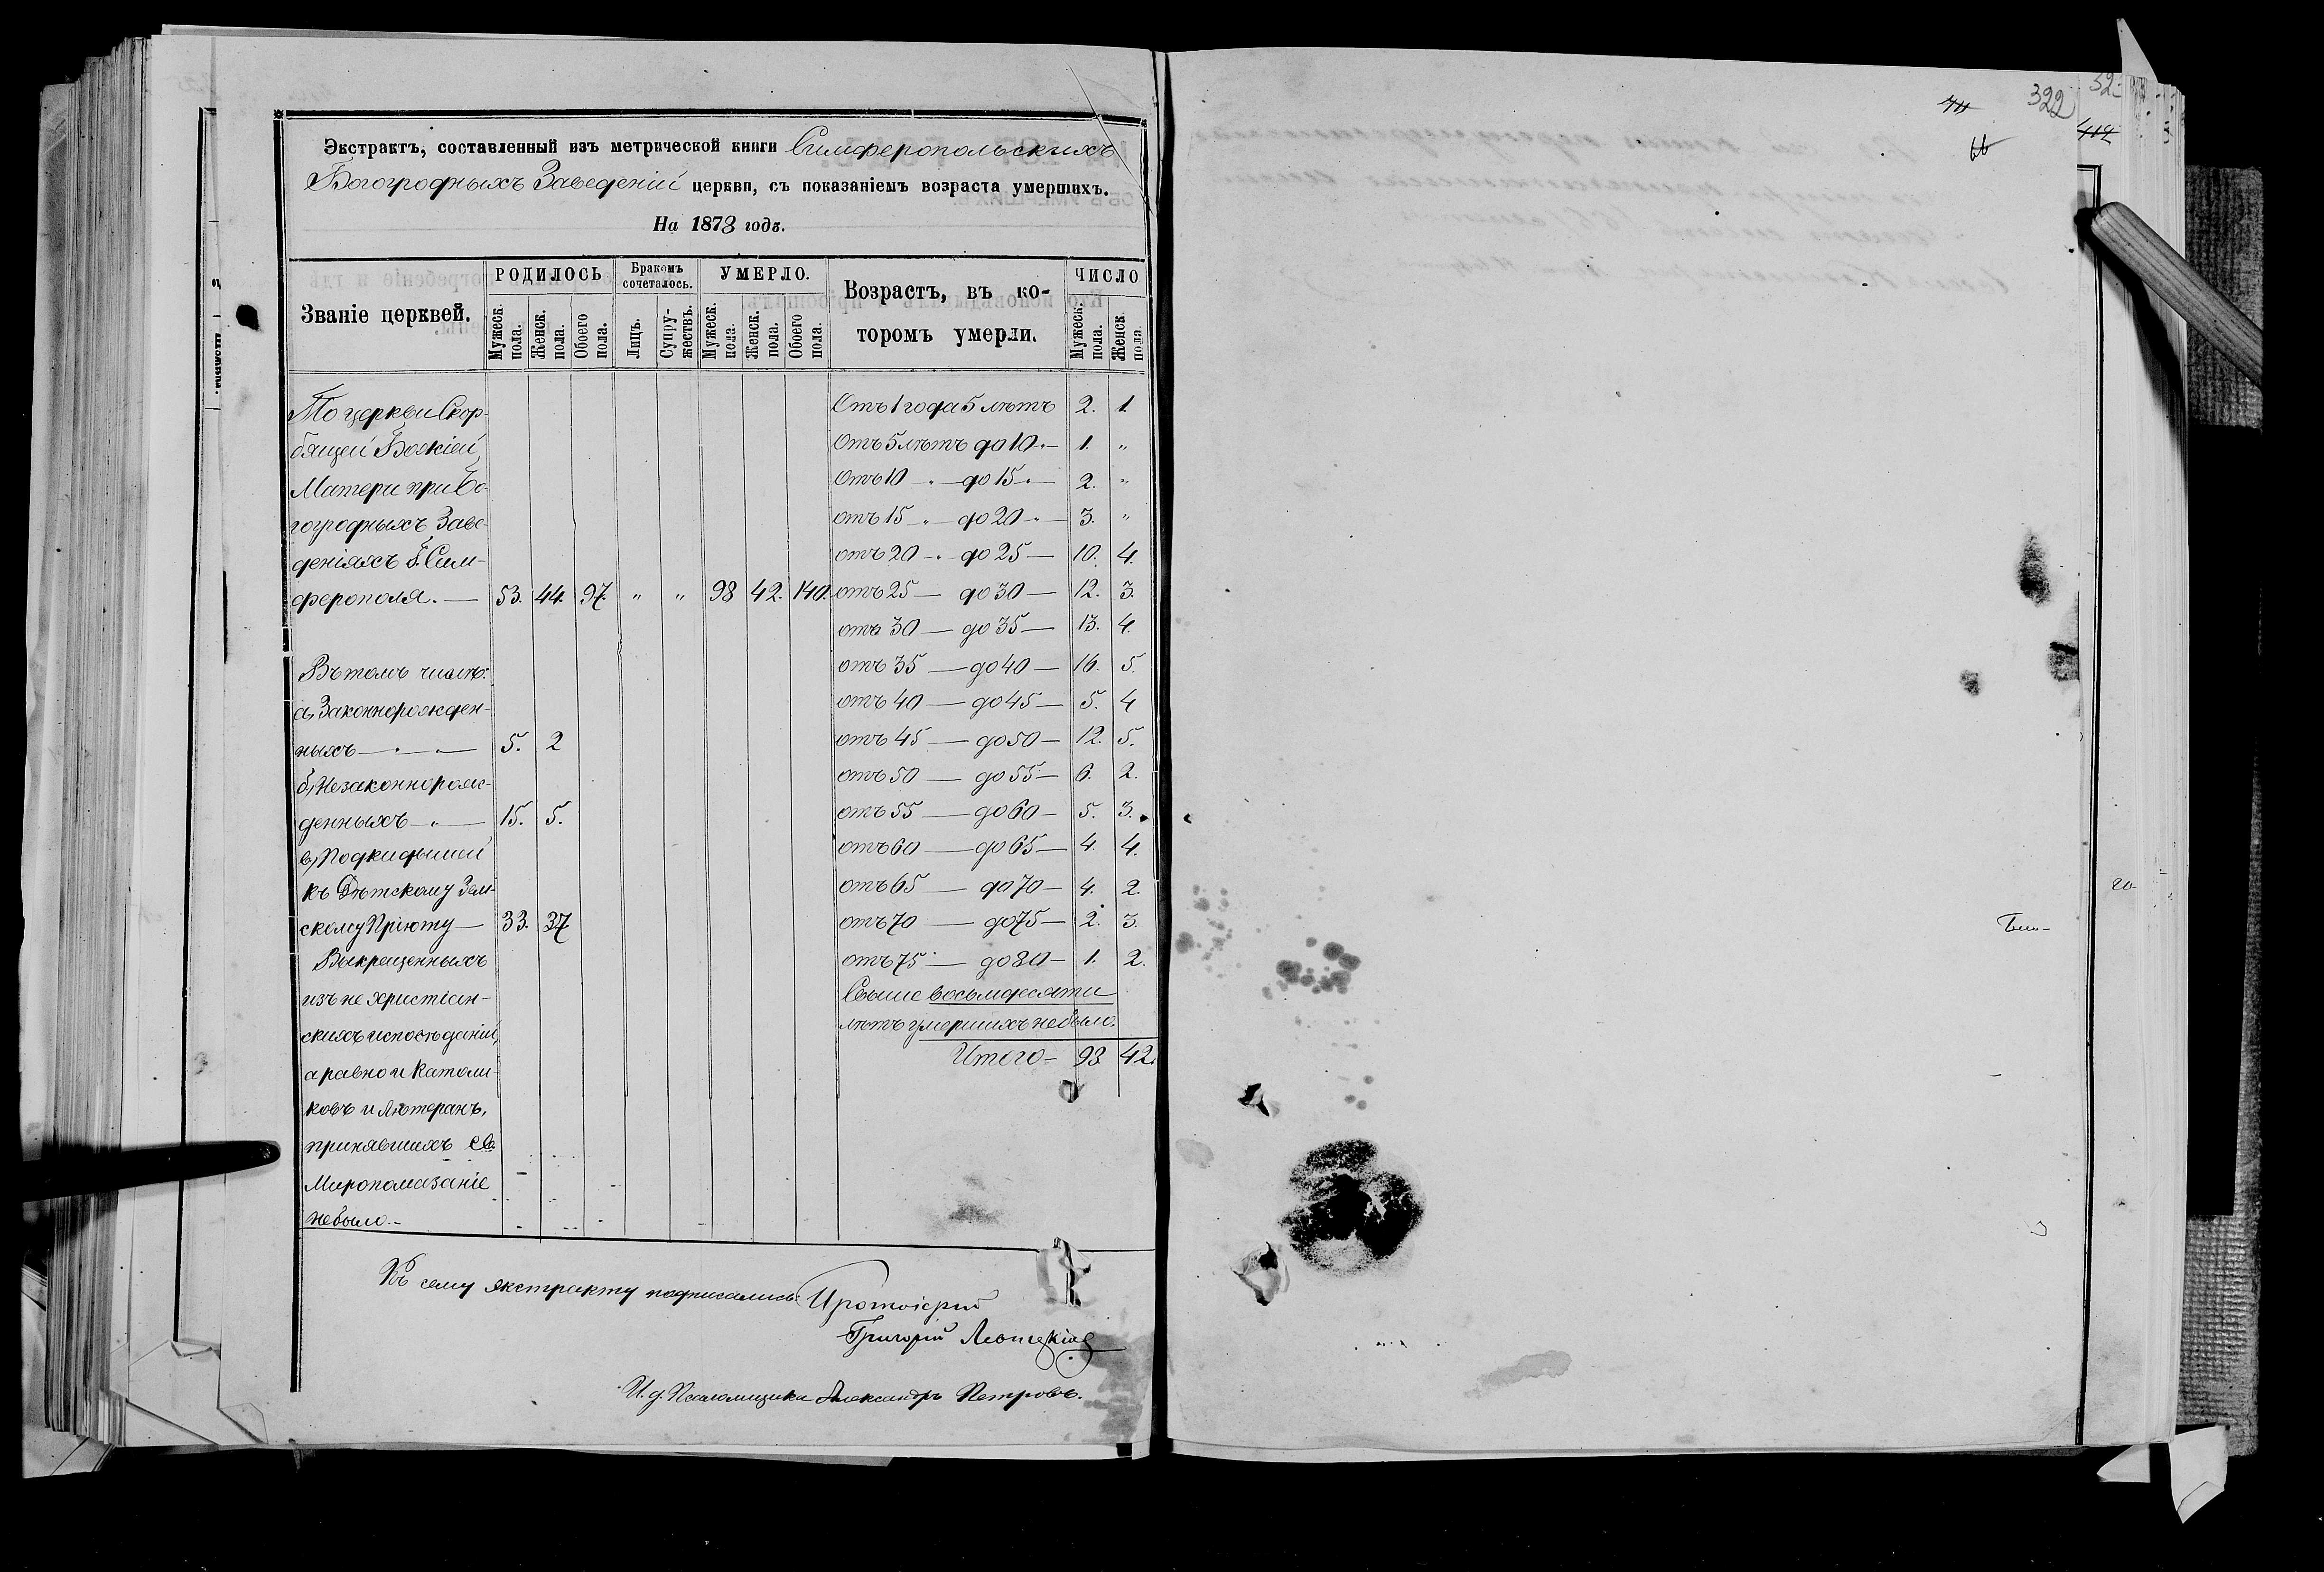 Экстрактъ, составленный изъ метрической книги Симферопольскихъ
Богоугодныхъ Заведеній церкви, съ показаніемъ возраста умершихъ.
На 1873 годъ.
Званіе церквей.
РОДИЛОСЬ
Мужеск. пола.
Женск. пола.
Обоего пола.
Бракомъ сочеталось.
Лицъ.
Супружествъ.
УМЕРЛО.
Мужеск. пола.
Женск. пола.
Обоего пола.
Возрастъ, въ ко-
торомъ умерли.
ЧИСЛО
Мужеск. пола.
Женск. пола.
По церкви Скор-
бящей Божіей
Матери при Бо-
гогродныхъ Заве-
деніяхъ г. Сим-
ферополя. — 53. 44. 97. " " 98 42. 140.
Въ томъ числѣ:
а, Законнорожден-
ныхъ — " — 5. 2
б, Незаконнорож-
денныхъ — " — 15. 5.
в, Подкидышей
къ Дѣтскому Зем-
скому Пріюту — 33. 37
Выкрещенныхъ
изъ не христіан-
скихъ исповѣданій,
а равно и Католи-
ковъ и Лютеранъ,
принявшихъ Св.
Миропомазаніе
небыло. -
Отъ 1 года 5 лѣтъ 2. 1.
Отъ 5 лѣтъ до 10 " — 1. "
Отъ 10 " — до 15 " — 2. "
отъ 15 " — до 20 " — 3. "
отъ 20 — " до 25 — 10. 4.
отъ 25 — до 30 — 12. 3.
отъ 30 — до 35 — 13. 4.
отъ 35 — до 40 — 16. 5.
отъ 40 — до 45 — 5. 4
отъ 45 — до 50 — 12. 5.
отъ 50 — до 55 — 6. 2.
отъ 55 — до 60 — 5. 3.
отъ 60 — до 65 — 4. 4.
отъ 65 — до 70 — 4. 2.
отъ 70 — до 75 — 2. 3.
отъ 75 — до 80 — 1. 2.
Свыше восьмдесяти
лѣтъ умершихъ небыло.
Итого — 98 42.
Къ сему экстракту подписались: Протоіерей
Григорій
И. д. Псаломщика Александръ Петровъ.
322
66
412